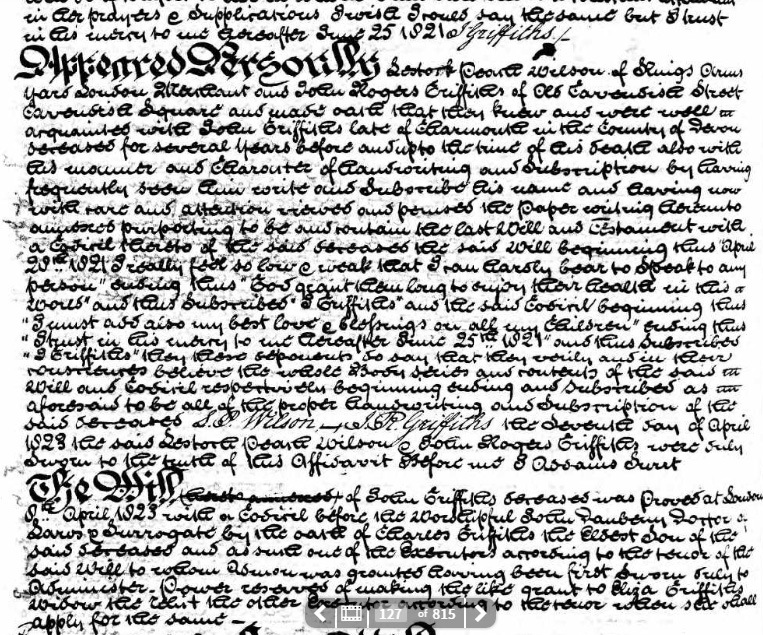 in her prayers & Supplications I wish I could say the same but I trust
in his mercy to me hereafter June 25 1821 J Griffiths /
Appeared Personally Lestock Peach Wilson of Kings Arms
Yard London Merchant and John Rogers Griffiths of Old Cavendish Street
Cavendish Square and made oath that they knew and were well
acquainted with John Griffiths late of Charmouth in the County of Devon
deceased for several years before and up to the time of his death also with
his manner and Character of handwriting and Subscription by having
frequently seen him write and Subscribe his name and having now
with care and attention viewed and perused the Paper writing hereunto
annexed purporting to be and contain the last Will and Testament with
a Codicil thereto of the said deceased the said Will beginning thus "April
20th 1821 I really feel so low & weak that I can hardly bear to speak to any
person" ending thus "God grant them long to enjoy their health in this
World" and thus Subscribed "J Griffiths" and the said Codicil beginning thus
"I must add also my best love & blessings on all my Children" ending thus
"I trust in his mercy to me hereafter June 25th 1821" and thus Subscribed
"J Griffiths" they these deponents do say that they verily and in their
consciences believe the whole Body series and contents of the said
Will and Codicil respectively beginning ending and Subscribed as
aforesaid to be all of the proper handwriting and Subscription of the
said deceased L. P. Wilson J. R. Griffiths the Seventh day of April
1823 the said Lestock Peach Wilson & John Rogers Griffiths were duly
Sworn to the truth of this Affidavit Before me J Addams Surrt
The Will of John Griffiths deceased was Proved at London
8th April 1823 with a Codicil before the Worshipful John Daubeny Doctor of
Laws & Surrogate by the oath of Charles Griffiths the Eldest Son of the
said deceased and as such one of the Executors according to the tenor of the
said Will to whom Admon was granted having been first Sworn duly to
Administer. Power reserved of making the like grant to Eliza Griffiths
Widow the relict the other Executor according to the tenor when she shall
apply for the same
127 of 815